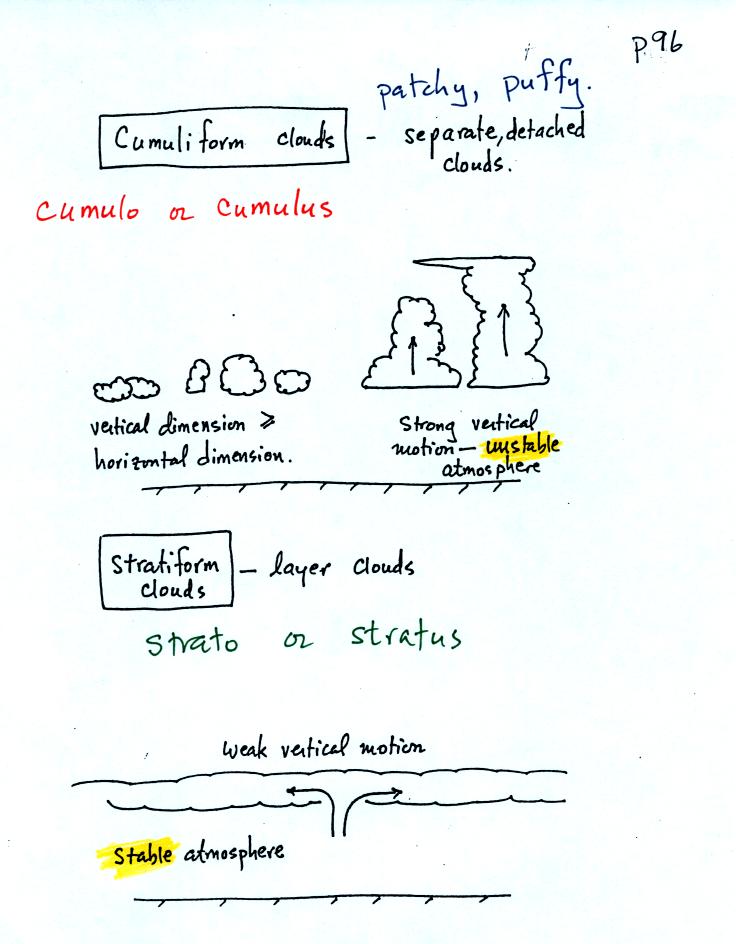 p.96
patchy, puffy.
Cumuliform clouds - separate, detached
clouds.
Cumulo or Cumulus
vertical dimension ≥
horizontal dimension.
Strong vertical
motion — unstable
atmosphere
Stratiform
clouds
— layer clouds
Strato or Stratus
Weak vertical motion
Stable atmosphere